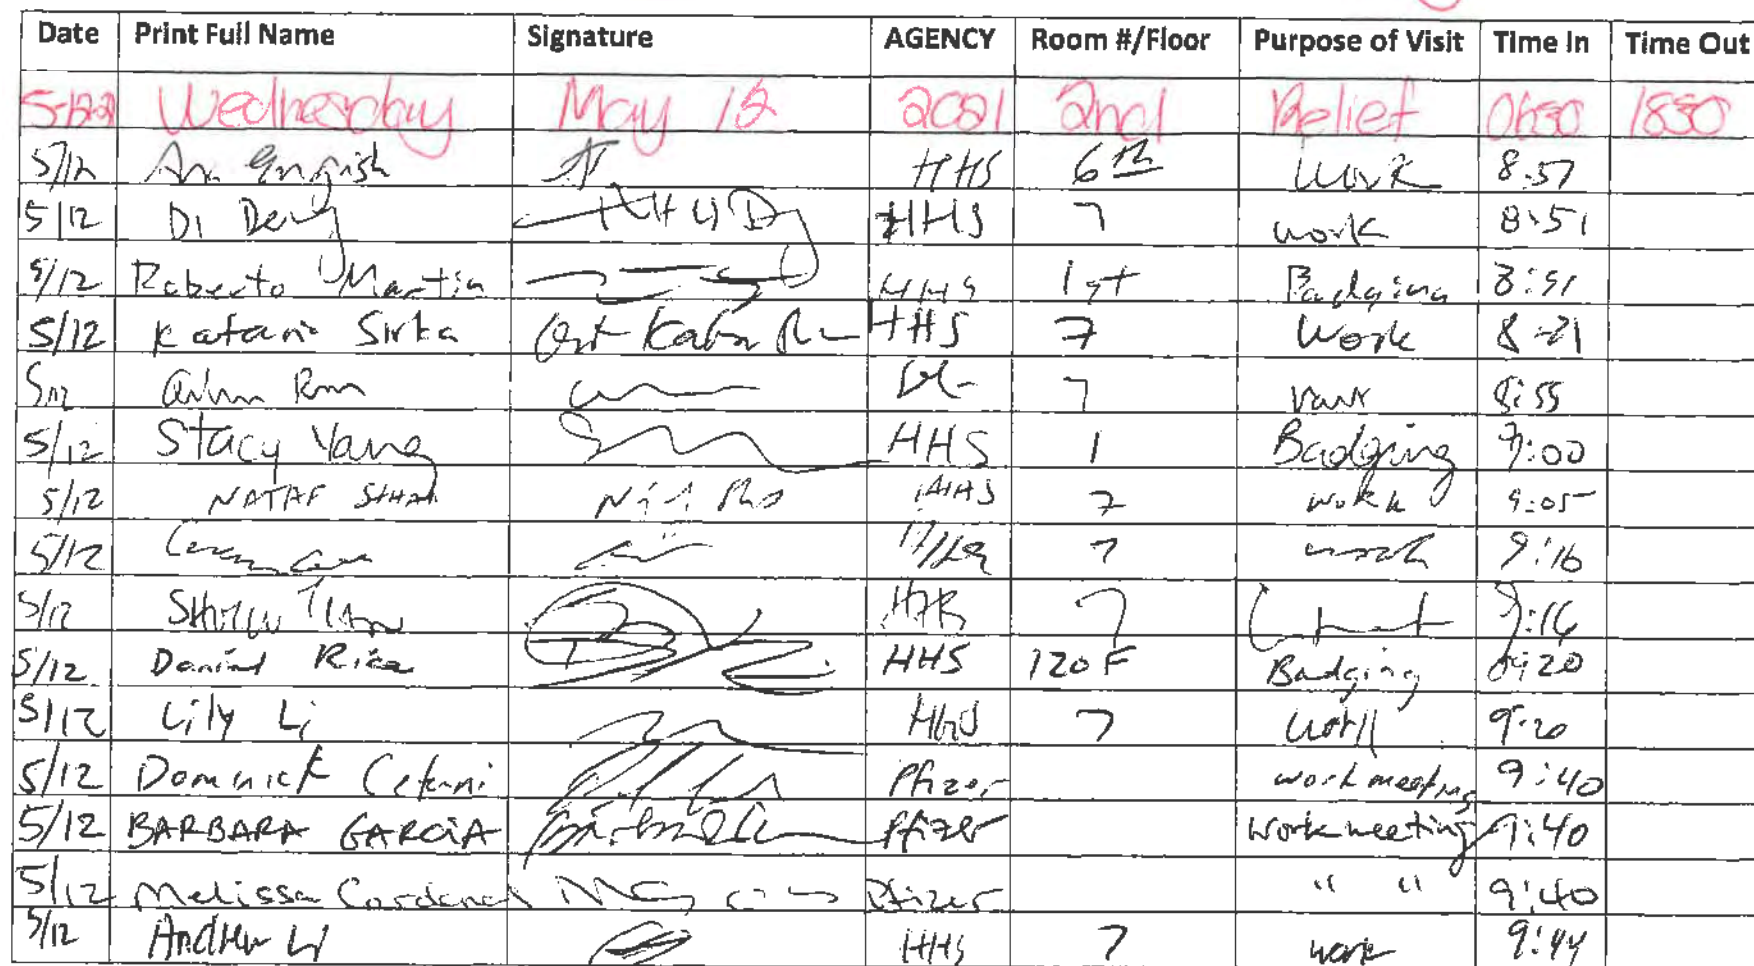 Date Print Full Name Signature AGENCY Room #/Floor Purpose of Visit Time In Time Out
Wednesday May 12 2021 2nd Relief 0630 1830
5/12 HHS 6th Work 8:57
5/12 Di Deng HHS 7 work 8:51
5/12 Roberto Martin HHS 1st Badging 8:51
5/12 Katari Sirka HHS 7 Work
5/12 7 8:55
5/12 Stacy Yang HHS 1 Badging 9:00
5/12 HHS 7 work 9:05
5/12 7 work 9:16
5/12 7 9:16
5/12 Daniel Rice HHS 120F Badging 0920
5/12 Lily Li HHS 7 work 9:20
5/12 Dominick Pfizer work meeting 9:40
5/12 BARBARA GARCIA Pfizer Work meeting 9:40
5/12 Melissa Cardenas Pfizer " " 9:40
5/12 Andrew Li HHS 7 work 9:44